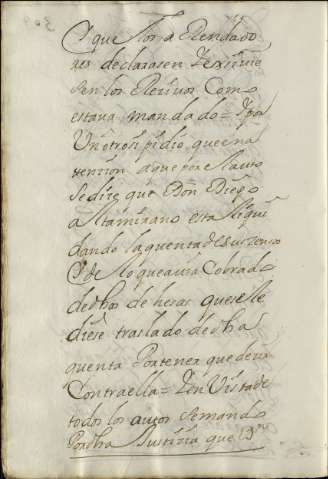 Y que los arrendado
res declarasen Y exsivie
sen los Recivos Como
estava mandado = Y por
Un otrosi pidio que en a
tension a que por el auto
se dize que Don Diego
Altamirano esta liqui
dando la quenta de su zenso
Y de lo que avia Cobrado
de dhas dehesas que se le
diese traslado de dha
quenta Por tener que dezir
Contra ella = Y en Vista de
todos los autos se mando
Por dha Justizia que Dn